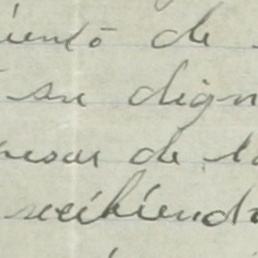 iento de
su dign
pesar de la
recibiendo